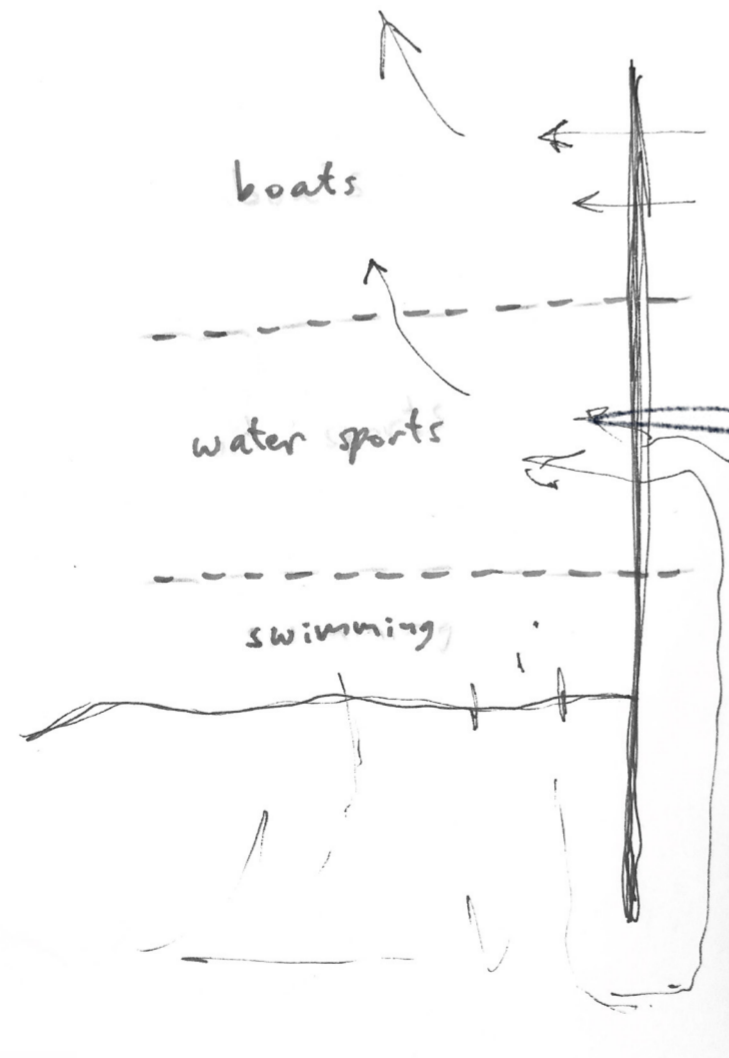 boats
water sports
swimming